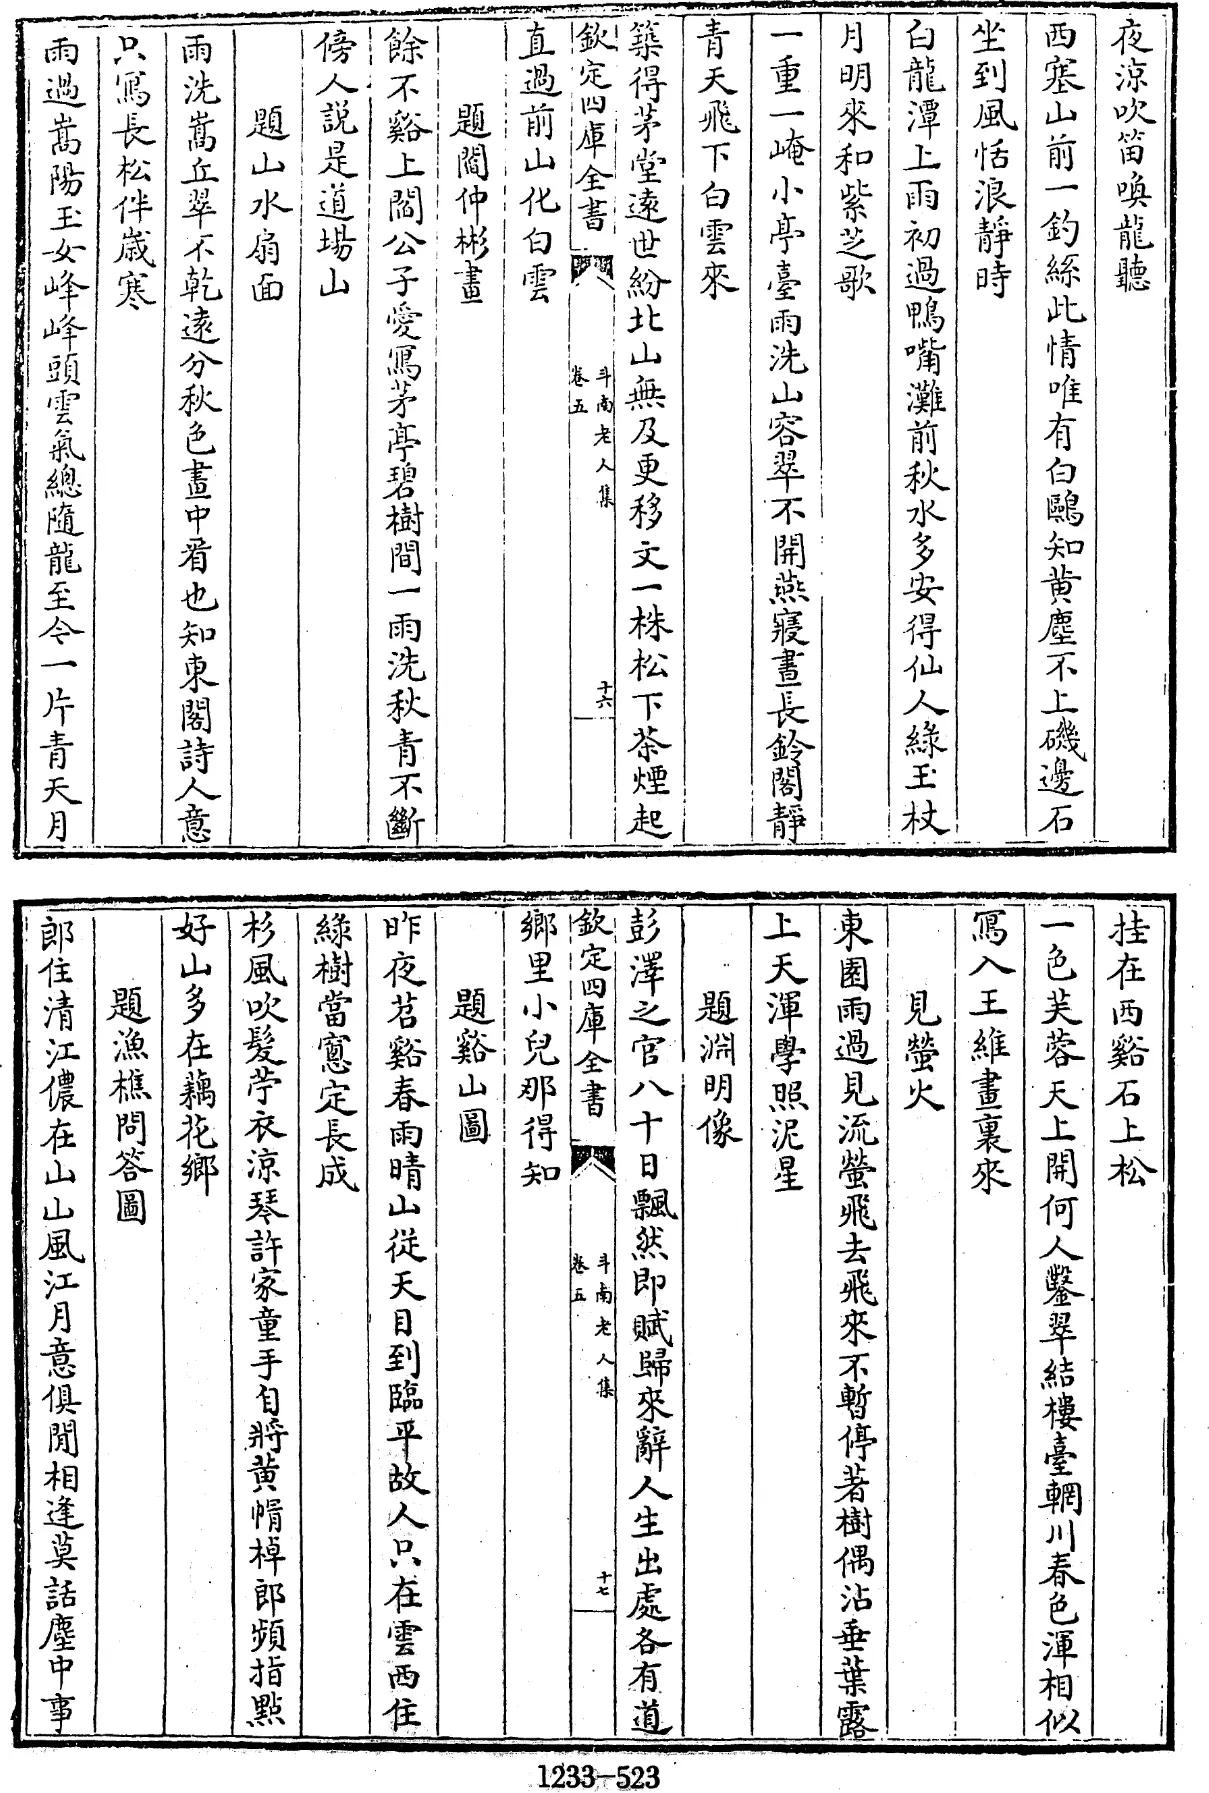 夜涼吹笛喚龍聽
西塞山前一釣絲此情唯有白鷗知黄塵不上磯邊石
坐到風恬浪靜時
白龍潭上雨初過鴨嘴灘前秋水多安得仙人綠玉杖
月明來和紫芝歌
一重一崦小亭臺雨洗山容翠不開燕寢晝長鈴閣靜
青天飛下白雲來
築得茅堂遠世紛北山無及更移文一株松下茶煙起
欽定四庫全書
斗南老人集
卷五
十六
直過前山化白雲
題閻仲彬畫
餘不谿上閻公子愛寫茅亭碧樹間一雨洗秋青不斷
傍人説是道場山
題山水扇面
雨洗嵩丘翠不乾遠分秋色畫中看也知東閣詩人意
只寫長松伴歳寒
雨過嵩陽玉女峰峰頭雲氣總隨龍至今一片青天月
挂在西谿石上松
一色芙蓉天上開何人鑿翠結樓臺輞川春色渾相似
寫入王維畫裏來
見螢火
東園雨過見流螢飛去飛來不暫停著樹偶沾垂葉露
上天渾學照泥星
題淵明像
彭澤之官八十日飄然即賦歸來辭人生出處各有道
欽定四庫全書
斗南老人集
卷五
十七
鄉里小兒那得知
題谿山圖
昨夜苕谿春雨晴山從天目到臨平故人只在雲西住
綠樹當窻定長成
杉風吹髮苧衣涼琴許家童手自將黄帽棹郎頻指點
好山多在藕花鄉
題漁樵問答圖
郎住清江儂在山山風江月意俱閒相逢莫話塵中事
1233-523